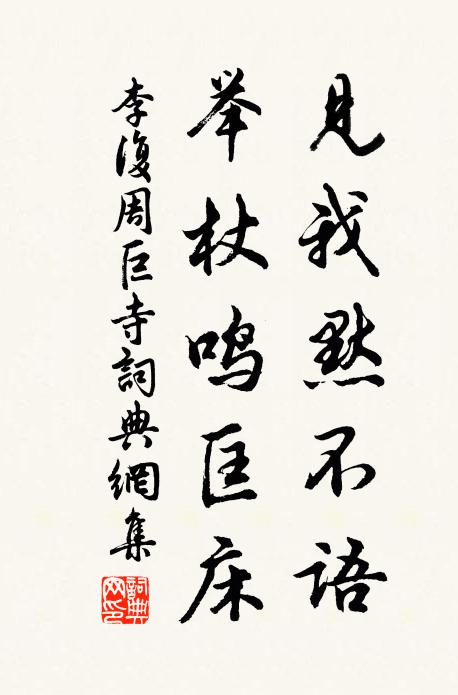 见我默不语
举杖鸣匡床
李復周巨寺詞典網集
詞典网印